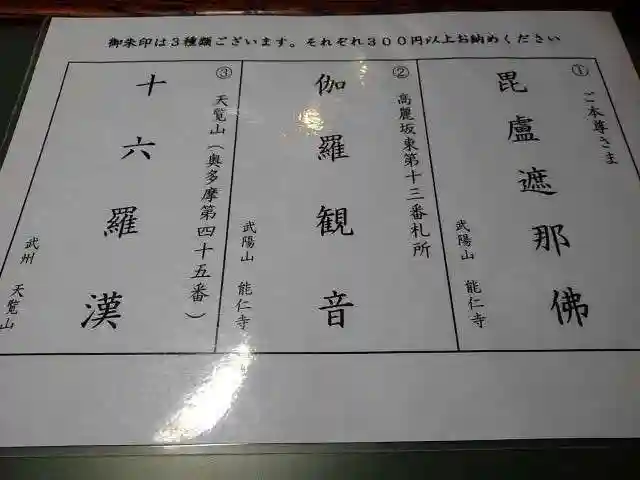 御朱印は３種類ございます。それぞれ３００円以上お納めください
①
ご本尊さま
毘盧遮那佛
武陽山　能仁寺
②
高麗坂東第十三番札所
伽羅観音
武陽山　能仁寺
③
天覧山（奥多摩第四十五番）
十六羅漢
武州　天覧山